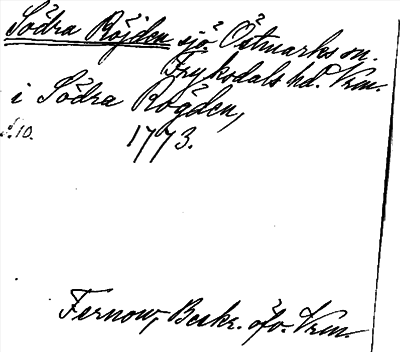 Södra Röjden sjö. Östmarks sn.
Fryksdals hd. Vrm.
i Södra Rögden,
1773.
Fernow, Beskr. öfv. Vrm.